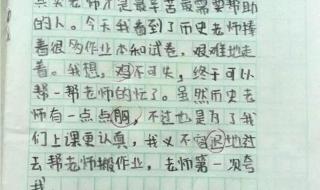 其实老师才是最辛苦最需要帮助
的人。今天我看到了历史老师捧
着很多作业本和试卷，艰难地走
着。我想，鸡不可失，终于可以
帮一帮老师的忙了。虽然历史老
师有一点点胸，不过也是为了我
们上课更认真，我义不容迟地过
去帮老师搬作业，老师第一次夸
我